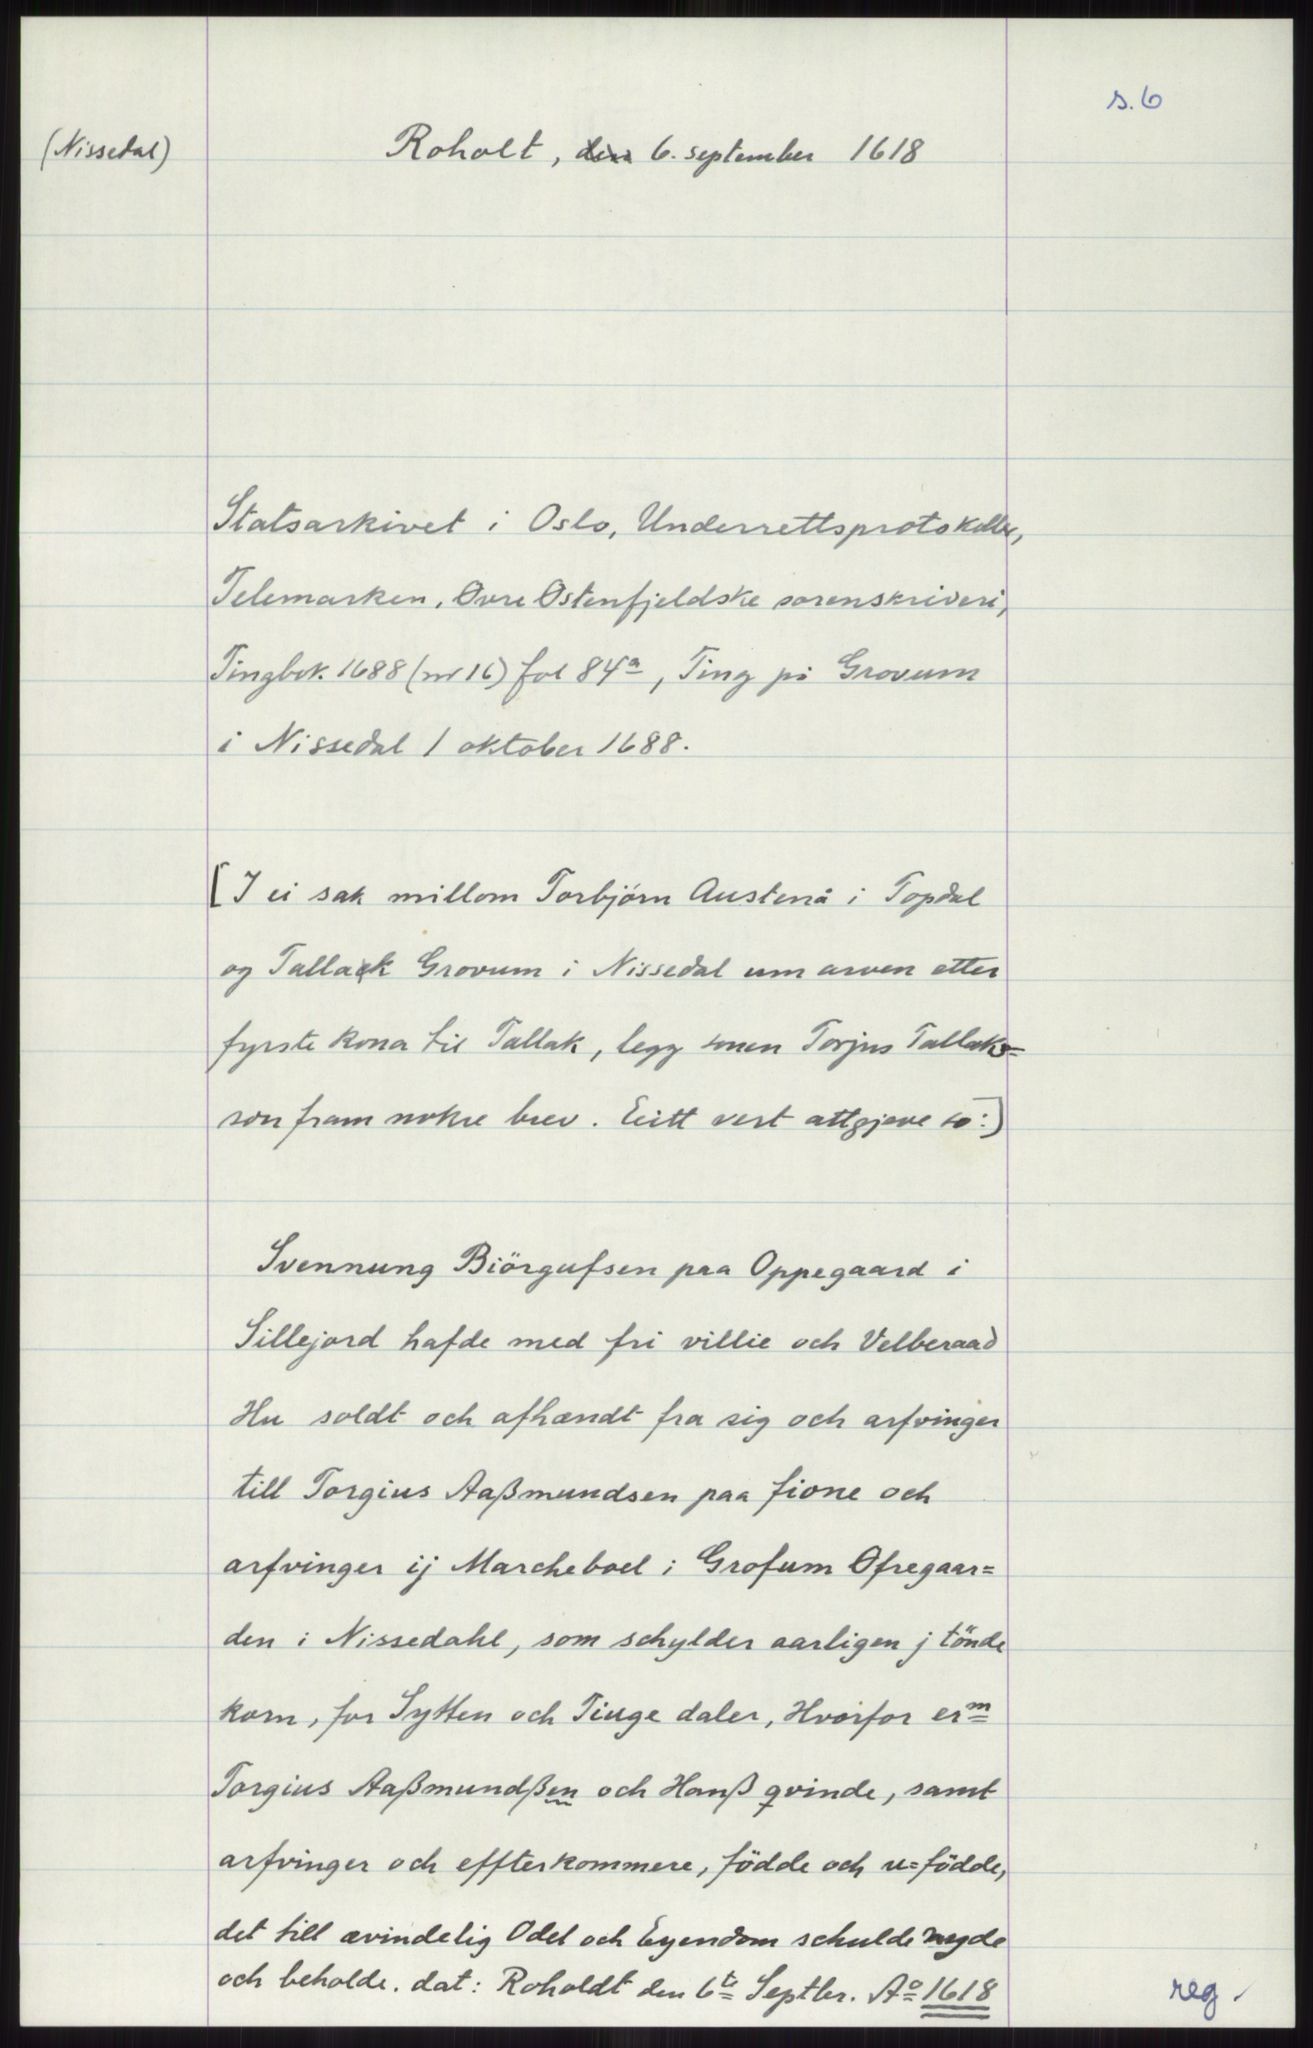 s. 6
(Nissedal)
Roholt, den 6. september 1618
Statsarkivet i Oslo, Underrettsprotokoller,
Telemarken, Øvre Østenfjeldske sorenskriveri,
Tingbok 1688 (nr 16) fol 84a, Ting på Grovum
i Nissedal 1 oktober 1688.
[I ei sak millom Torbjörn Austenå i Topdal
og Tallak Grovum i Nissedal um arven etter
fyrste kona til Tallak, legg sonen Torjus Tallaks=
son fram nokre brev. Eitt vert attgjeve so:]
Svennung Biörgufsen paa Oppegaard i
Sillejord hafde med fri villie och Velberaad
Hu soldt och afhændt fra sig och arfvinger
till Torgius Aaßmundsen paa fione och
arfvinger ij Marcheboel i Grofum Øfregaar=
den i Nissedahl, som schylder aarligen j tönde
korn, for Sytten och Tiuge daler, Hvorfor erm
Torgius Aaßmundßen och Hanß qvinde, samt
arfvinger och effterkommere, födde och u=födde,
det till ævindelig Odel och Eyendom schulde nyde
och beholde. dat: Roholdt den 6te Septbr. Ao 1618
reg.